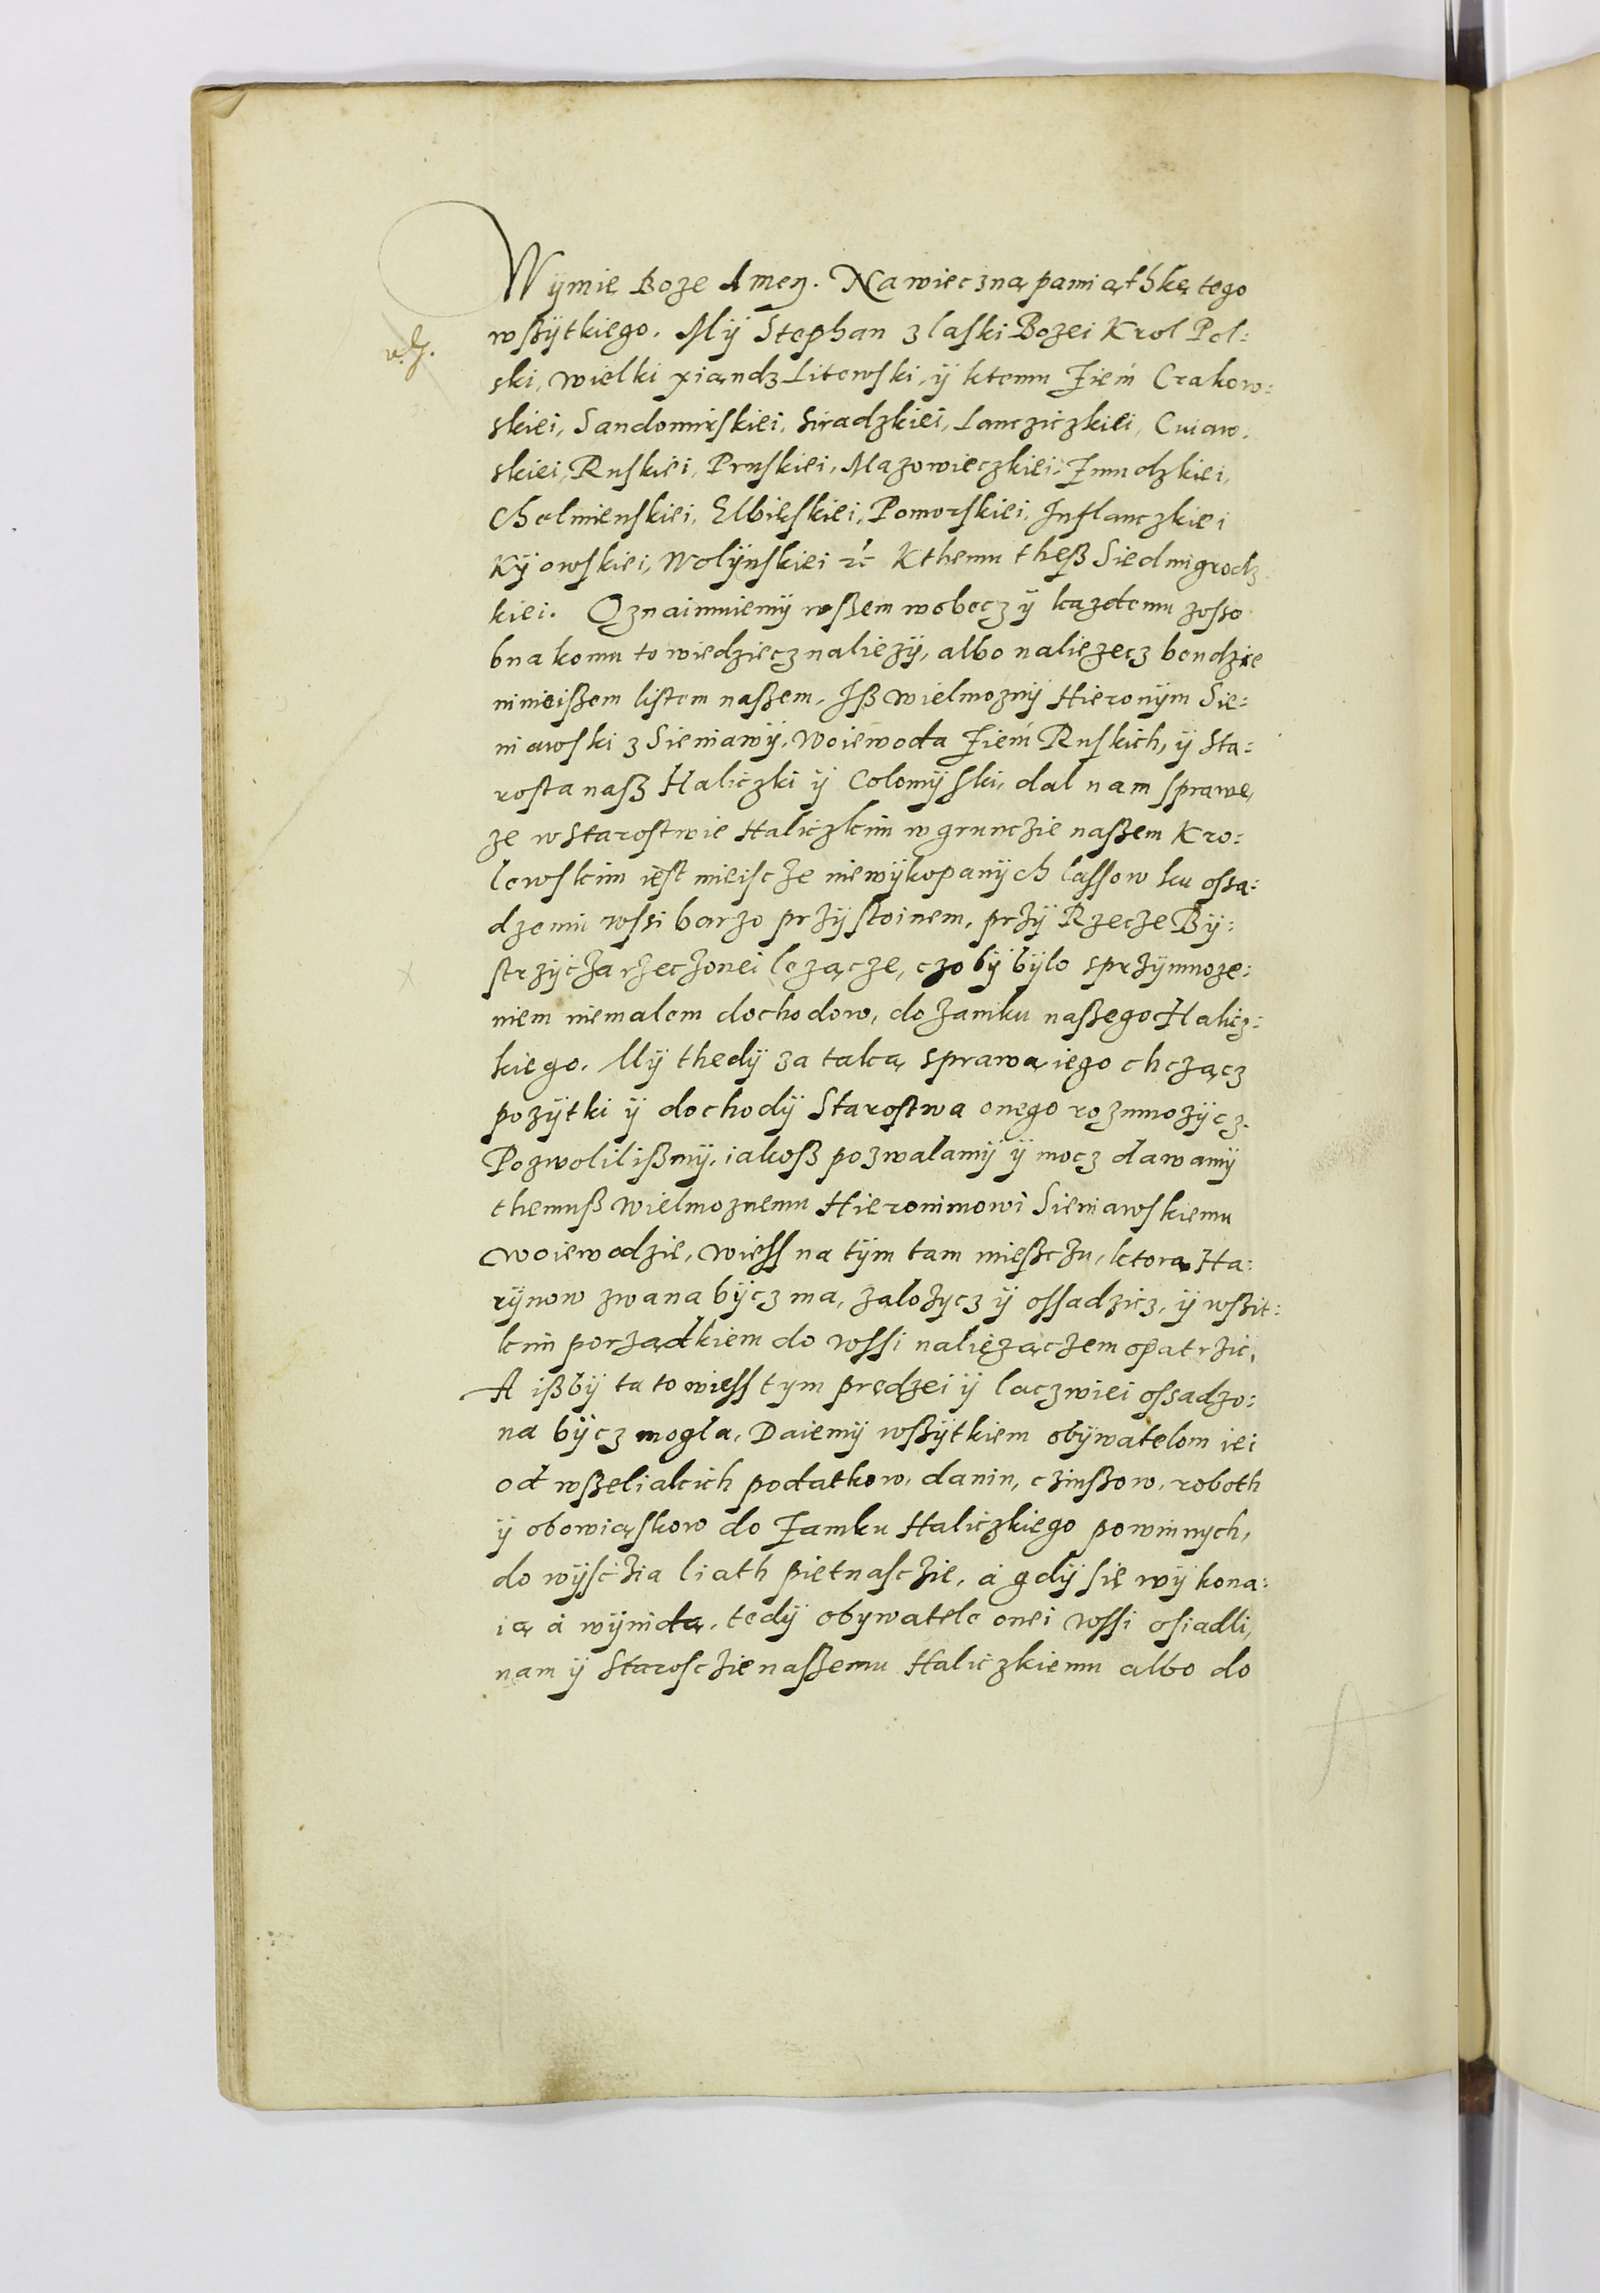 Wÿmie Boze Amen. Nawieczną pamiąthkę tego
wßÿtkiego. Mÿ Stephan z laski Bozei Krol Pol:
ski, Wielki xiandz Litewski, ÿ ktemu Ziem Crakow:
skiei, Sandomirskiei, Siradzkiei, Lancziczkiei, Cuiaw.
skiei, Ruskiei, Pruskiei, Mazowieczkiei, Zmudzkiei,
Chelmienskiei, Elbieskiei, Pomorskiei, Inflanczkiei
Kÿowskiei, Wolÿnskiei etc Kthemu theß Siedmigrodz
kiei. Oznaimuiemÿ wßem wobecz ÿ kazdemu zosso
bna komu to wiedziecz nalezÿ, albo naliezecz bendzie
ninieißem listem naßem, Iß wielmoznÿ Hieronÿm Sie:
niawski z Sieniawÿ, Woiewoda Ziem Ruskich, ÿ Sta:
rosta naß Haliczki ÿ Colomÿski, dal nam sprawe,
ze w Starostwie Haliczkim w grunczie naßem Kro:
lewskim iest mieiscze niewÿkopanÿch lassow ku ossa:
dzeniu wssi barzo przÿstoinem, przÿ Rzecze Bÿ:
strzÿcza rzeczonei lezącze, czobÿ bÿlo sprzÿmnoze:
niem niemalem dochodow, do zamku naßego Halicz:
kiego. Mÿ thedÿ za taką sprawą iego chcząz
pozÿtki ÿ dochodÿ Starostwa onego rozmnozÿcz.
Pozwolilißmÿ, iakoß pozwalamÿ ÿ mocz dawamÿ
themuß wielmoznemu Hieronimowi Sieniawskiemu
Woiewodzie, wiess na tÿm tam mießczu, ktora Ha:
rÿnow zwana bÿcz ma, zalozycz ÿ ossadzicz, ÿ wßit:
kim porządkiem do wssi naliezączem opatrzic,
A ißbÿ ta to wiess tym prędzei ÿ laczwiei ossadzo:
na bÿcz mogla, Daiemÿ wßÿtkiem obÿwatelom iei
od wßeliakich podatkow, danin, czinßow, roboth
ÿ obowiąskow do Zamku Haliczkiego powinnych,
do wÿsczia liath piętnasczie, a gdÿ się wÿkona:
ią a wÿnidą, tedÿ obywatele onei wssi osiadli,
nam ÿ Starosczie naßemu Haliczkiemu albo do